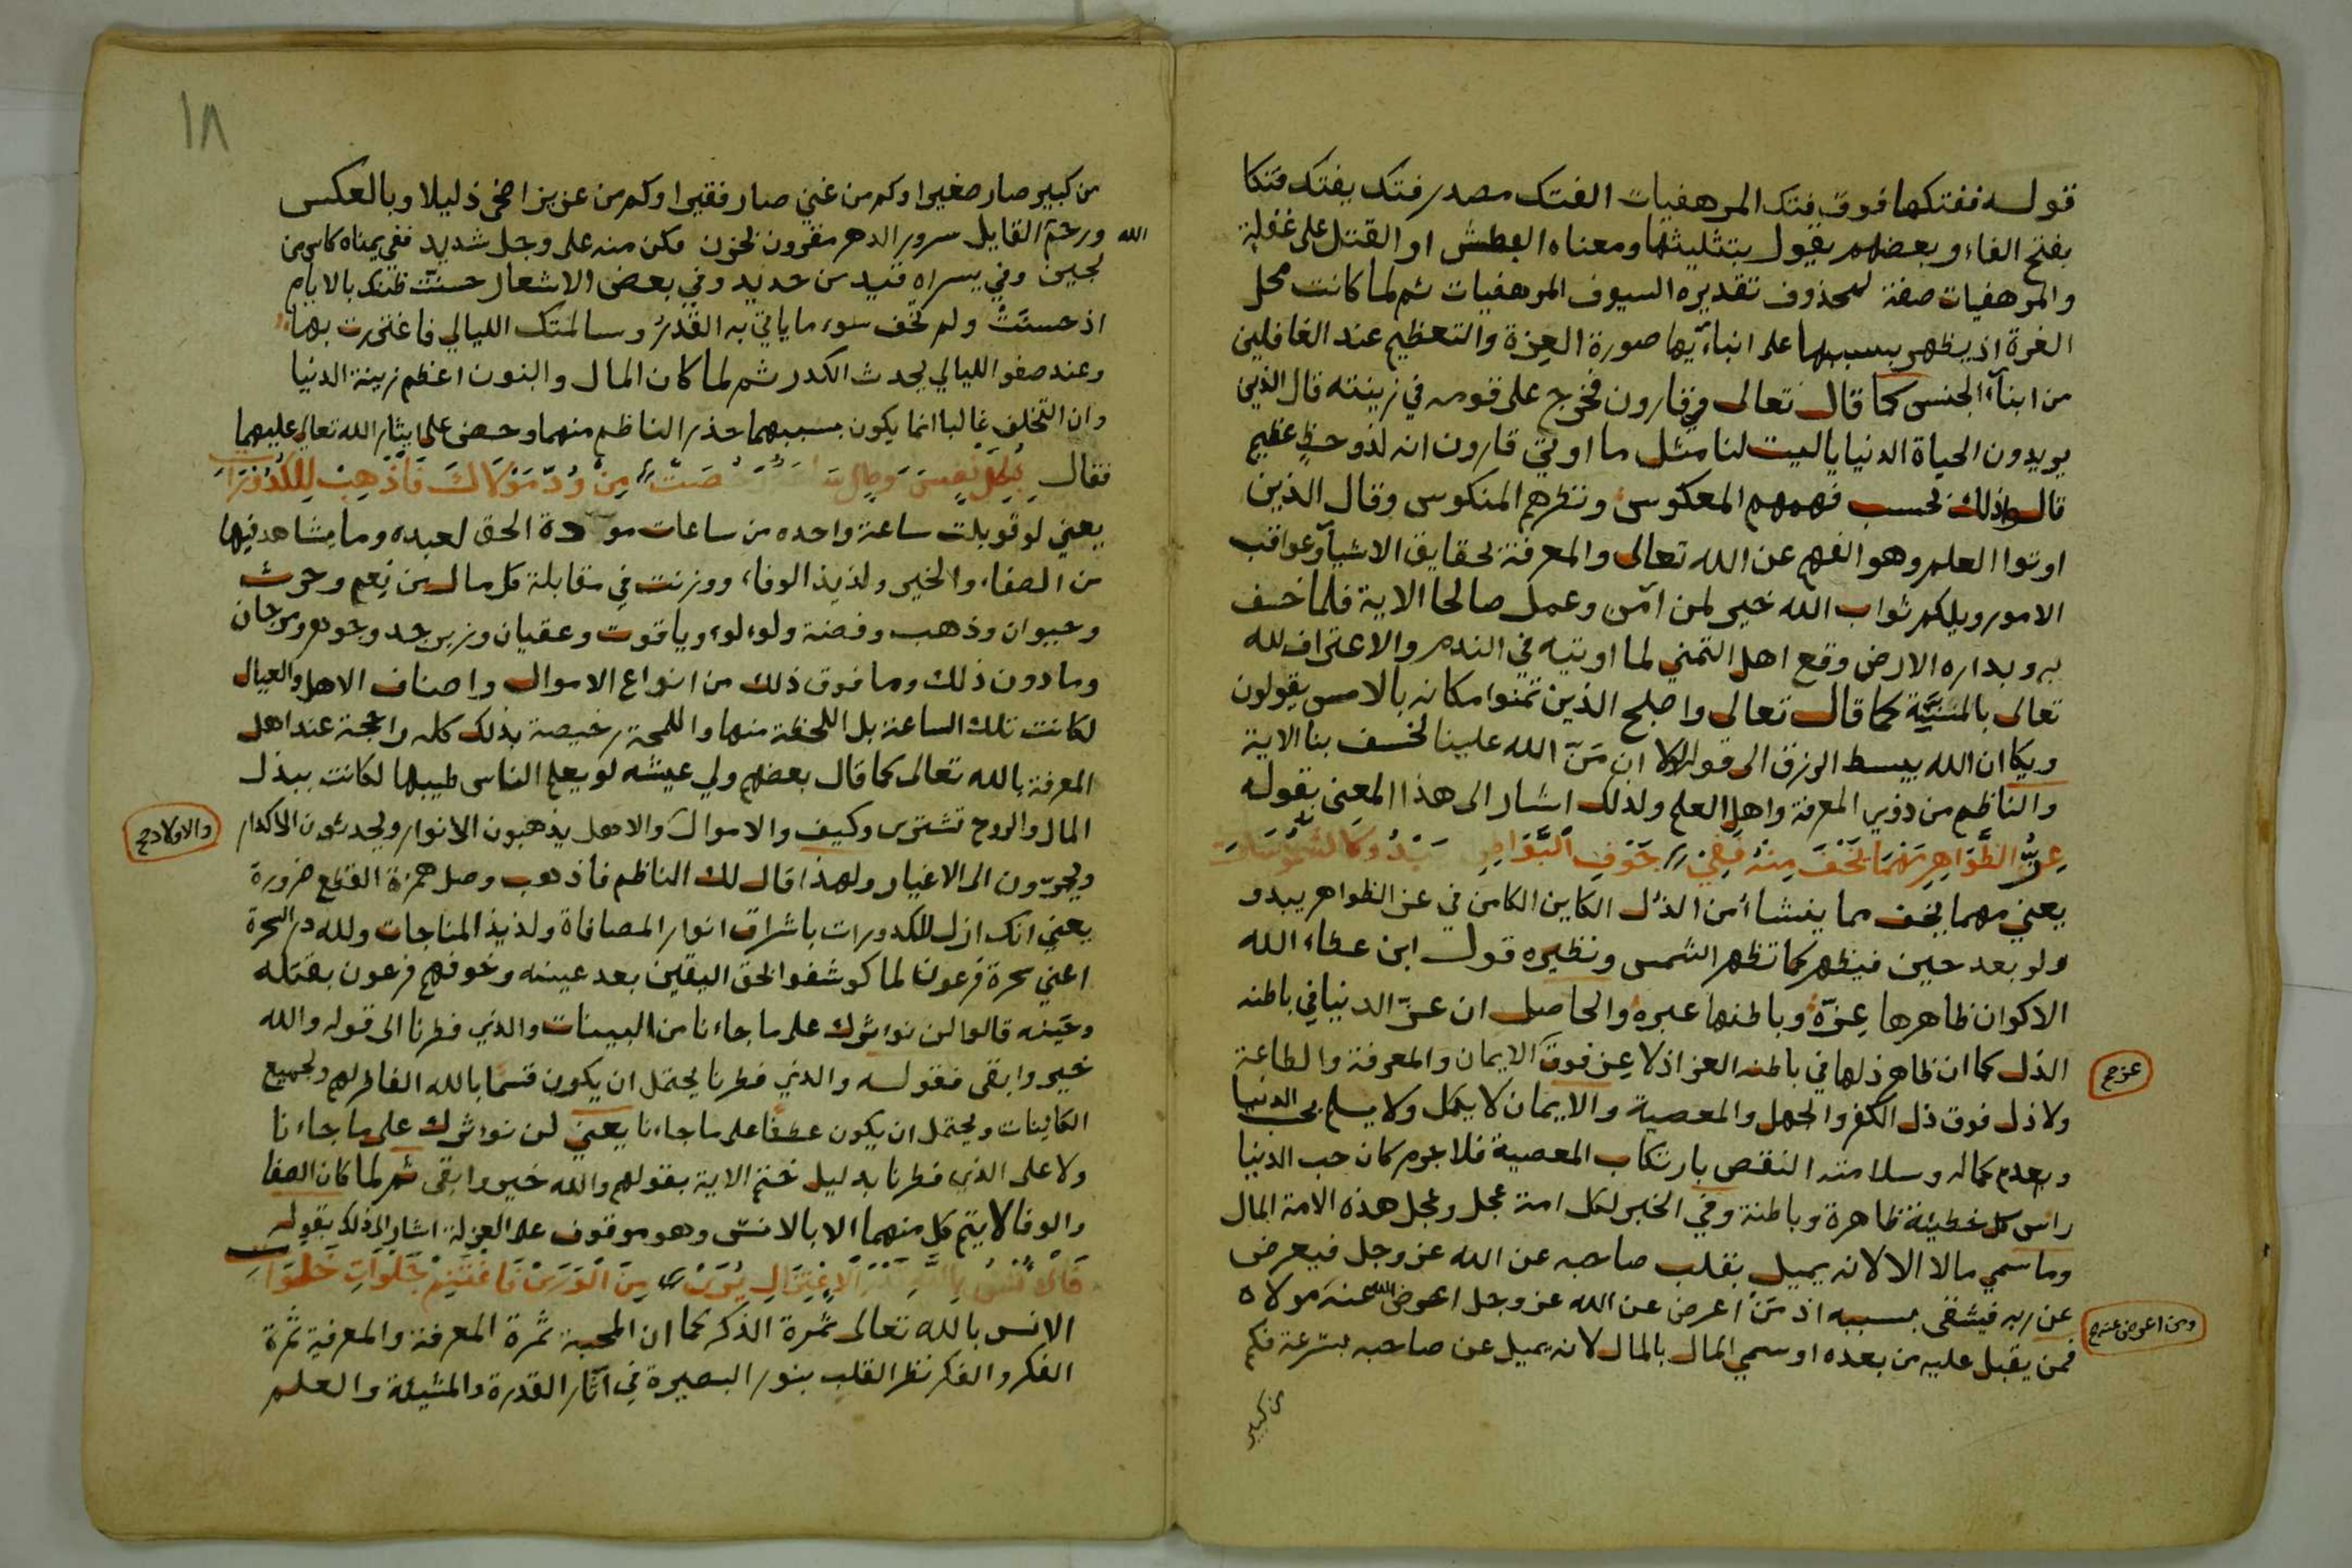 قوله ففتكها فوق فتك المرهفيات الفتك مصدر فتك يفتك فتكا
بفتح الفاء وبعضهم يقول بتثليثها ومعناه البطش او القتل على غفلة
والمرهفيات صفة لمحذوف تقديره السيوف المرهفيات ثم لما كانت محل
الغرة اذ يظهر بسببها على ابنآئها صورة العزة والتعظيم عند الغافلين
من ابنآء الجنس كما قال تعالى في قارون فخرج على قومه في زينته قال الذين
يريدون الحياة الدنيا ياليت لنا مثل ما اوتي قارون انه لذو حظ عظيم
قالوا ذلك بحسب فهمهم المعكوس ونظرهم المنكوس وقال الذين
اوتوا العلم وهو الفهم عن الله تعالى والمعرفة لحقايق الاشيآ وعواقب
الامور ويلكم ثواب الله خير لمن آمن وعمل صالحا الاية فلما خسف
به وبداره الارض وقع اهل التمني لما اوتيه في الندم والاعتراف لله
تعالى بالمنيّة كما قال تعالى واصلح الذين تمنوا مكانه بالامس يقولون
ويكان الله يبسط الرزق الى قوله لولا ان مَنّ الله علينا لخسف بنا الاية
والناظم من ذوي المعرفة واهل العلم ولذلك اشار الى هذا المعنى بقوله
عِزُّ الظَّوَاهِرِ مَهْمَا يَخْفَ مِنْهُ فَفِي // جَوْفِ الْبَوَاطِنِ يَبْدُو كَالشُّمُوسَاتِ
يعني مهما يخف مما ينشا من الذل الكاين الكامن في عز الظواهر يبدو
ولو بعد حين فيظهر كما تظهر الشمس ونظيره قول ابن عطاء الله
الاكوان ظاهرها عِزّة وباطنها عبرة والحاصل ان عزّ الدنيا في باطنه
الذل كما ان ظاهر ذلها في باطنه العز اذ لا عز فوق الايمان والمعرفة والطاعة
عز صح
ولا ذل فوق ذل الكفر والجهل والمعصية والايمان لا يكمل ولا يسلم بحب الدنيا
ويعدم كماله وسلامته النقص بارتكاب المعصية فلا جرم كان حب الدنيا
راس كل خطيئة ظاهرة وباطنة وفي الخبر لكل امة عجل وعجل هذه الامة المال
وما سمي مالا الا لانه يميل بقلب صاحبه عن الله عز وجل فيعرض
عن ربه فيشقى بسببه اذ مَن اعرض عن الله عز وجل اعرض الله عنه مولاه
ومن اعرض عنه صح
فمن يقبل عليه من بعده او سمي المال بالمال لانه يميل عن صاحبه بسرعة فكم
من كبير
١٨
من كبير صار صغيرا وكم من غني صار فقيرا وكم من عزيز اضحى ذليلا وبالعكس
الله ورحم القايل سرور الدهر مقرون بحزن فكن منه على وجل شديد ففي يمناه كاس من
لجين وفي يسراه قيد من حديد وفي بعض الاشعار حسنت ظنك بالايام
اذ حسنَتْ ولم تخف سوء ما ياتي به القدَرُ وسالمتك الليالي فاغتررت بها
وعند صفو الليالي يحدث الكدر ثم لما كان المال والبنون اعظم زينة الدنيا
وان التخلف غالبا انما يكون بسببهما حذر الناظم منهما وحض على ايثار الله تعالى عليهما
فقال مِنْ وُدّ مَوْلَاكَ فَاذْهِبْ لِلْكُدُورَاتِ
يعني لو قوبلت ساعة واحده من ساعات مودة الحق لعبده وما يشاهد فيها
من الصفاء والخير ولذيذ الوفاء، ووزنت في مقابلة كل مال من نِعم وحرث
وحيوان وذهب وفضة ولولو وياقوت وعقيان وزبرجد وجوهر ومرجان
وما دون ذلك وما فوق ذلك من انواع الاموال واصناف الاهل والعيال
لكانت تلك الساعة بل اللحظة منها واللمحة رخيصة بذلك كله راجحة عند اهل
المعرفة بالله تعالى كما قال بعضهم ولي عيشه لو يعلم الناس طيبها لكانت ببذل
المال والروح تشترى وكيف والاموال والاهل يذهبون الانوار ويحدثون الاكدار
والاولاد صح
ويجرّون الى الاغيار ولهذا قال لك الناظم فاذهب وصل همزة القطع ضرورة
يعني انك ازل للكدورات باشراق انوار المصافاة ولذيذ المناجات ولله در السحرة
اعني سحرة فرعون لما كوشفوا لحق اليقين بعد عينه وخوفهم فرعون بقتله
وعَينه قالوا لن نوثرك على ما جاءنا من البينات والذي فطرنا الى قوله والله
خير وابقى فقوله والذي فطرنا يحتمل ان يكون قسما بالله الفاطر لهم ولجميع
الكاينات ويحتمل ان يكون عطفا على ما جاءنا يعني لن نوثرك على ما جاءنا
ولا على الذي فطرنا بدليل ختم الاية بقولهم والله خير وابقى ثم لما كان الصفا
والوفا لا يتم كل منهما الا بالانس وهو موقوف على العزلة اشار الى ذلك بقوله
الِاعْتِزَالِ يُرَى // مِنَ الْوَرَى فَاغْتَنِمْ جَلْوَاتِ خَلْوَاتِ
الانس بالله تعالى ثمرة الذكر كما ان المحبة ثمرة المعرفة والمعرفة ثمرة
الفكر والفكر نظر القلب بنور البصيرة في آثار القدرة والمشيئة والعلم